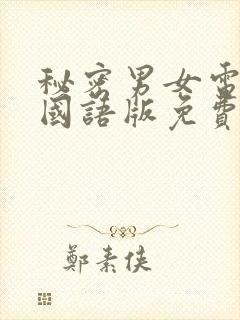 秘密男女電
國語版免費
鄭素俠